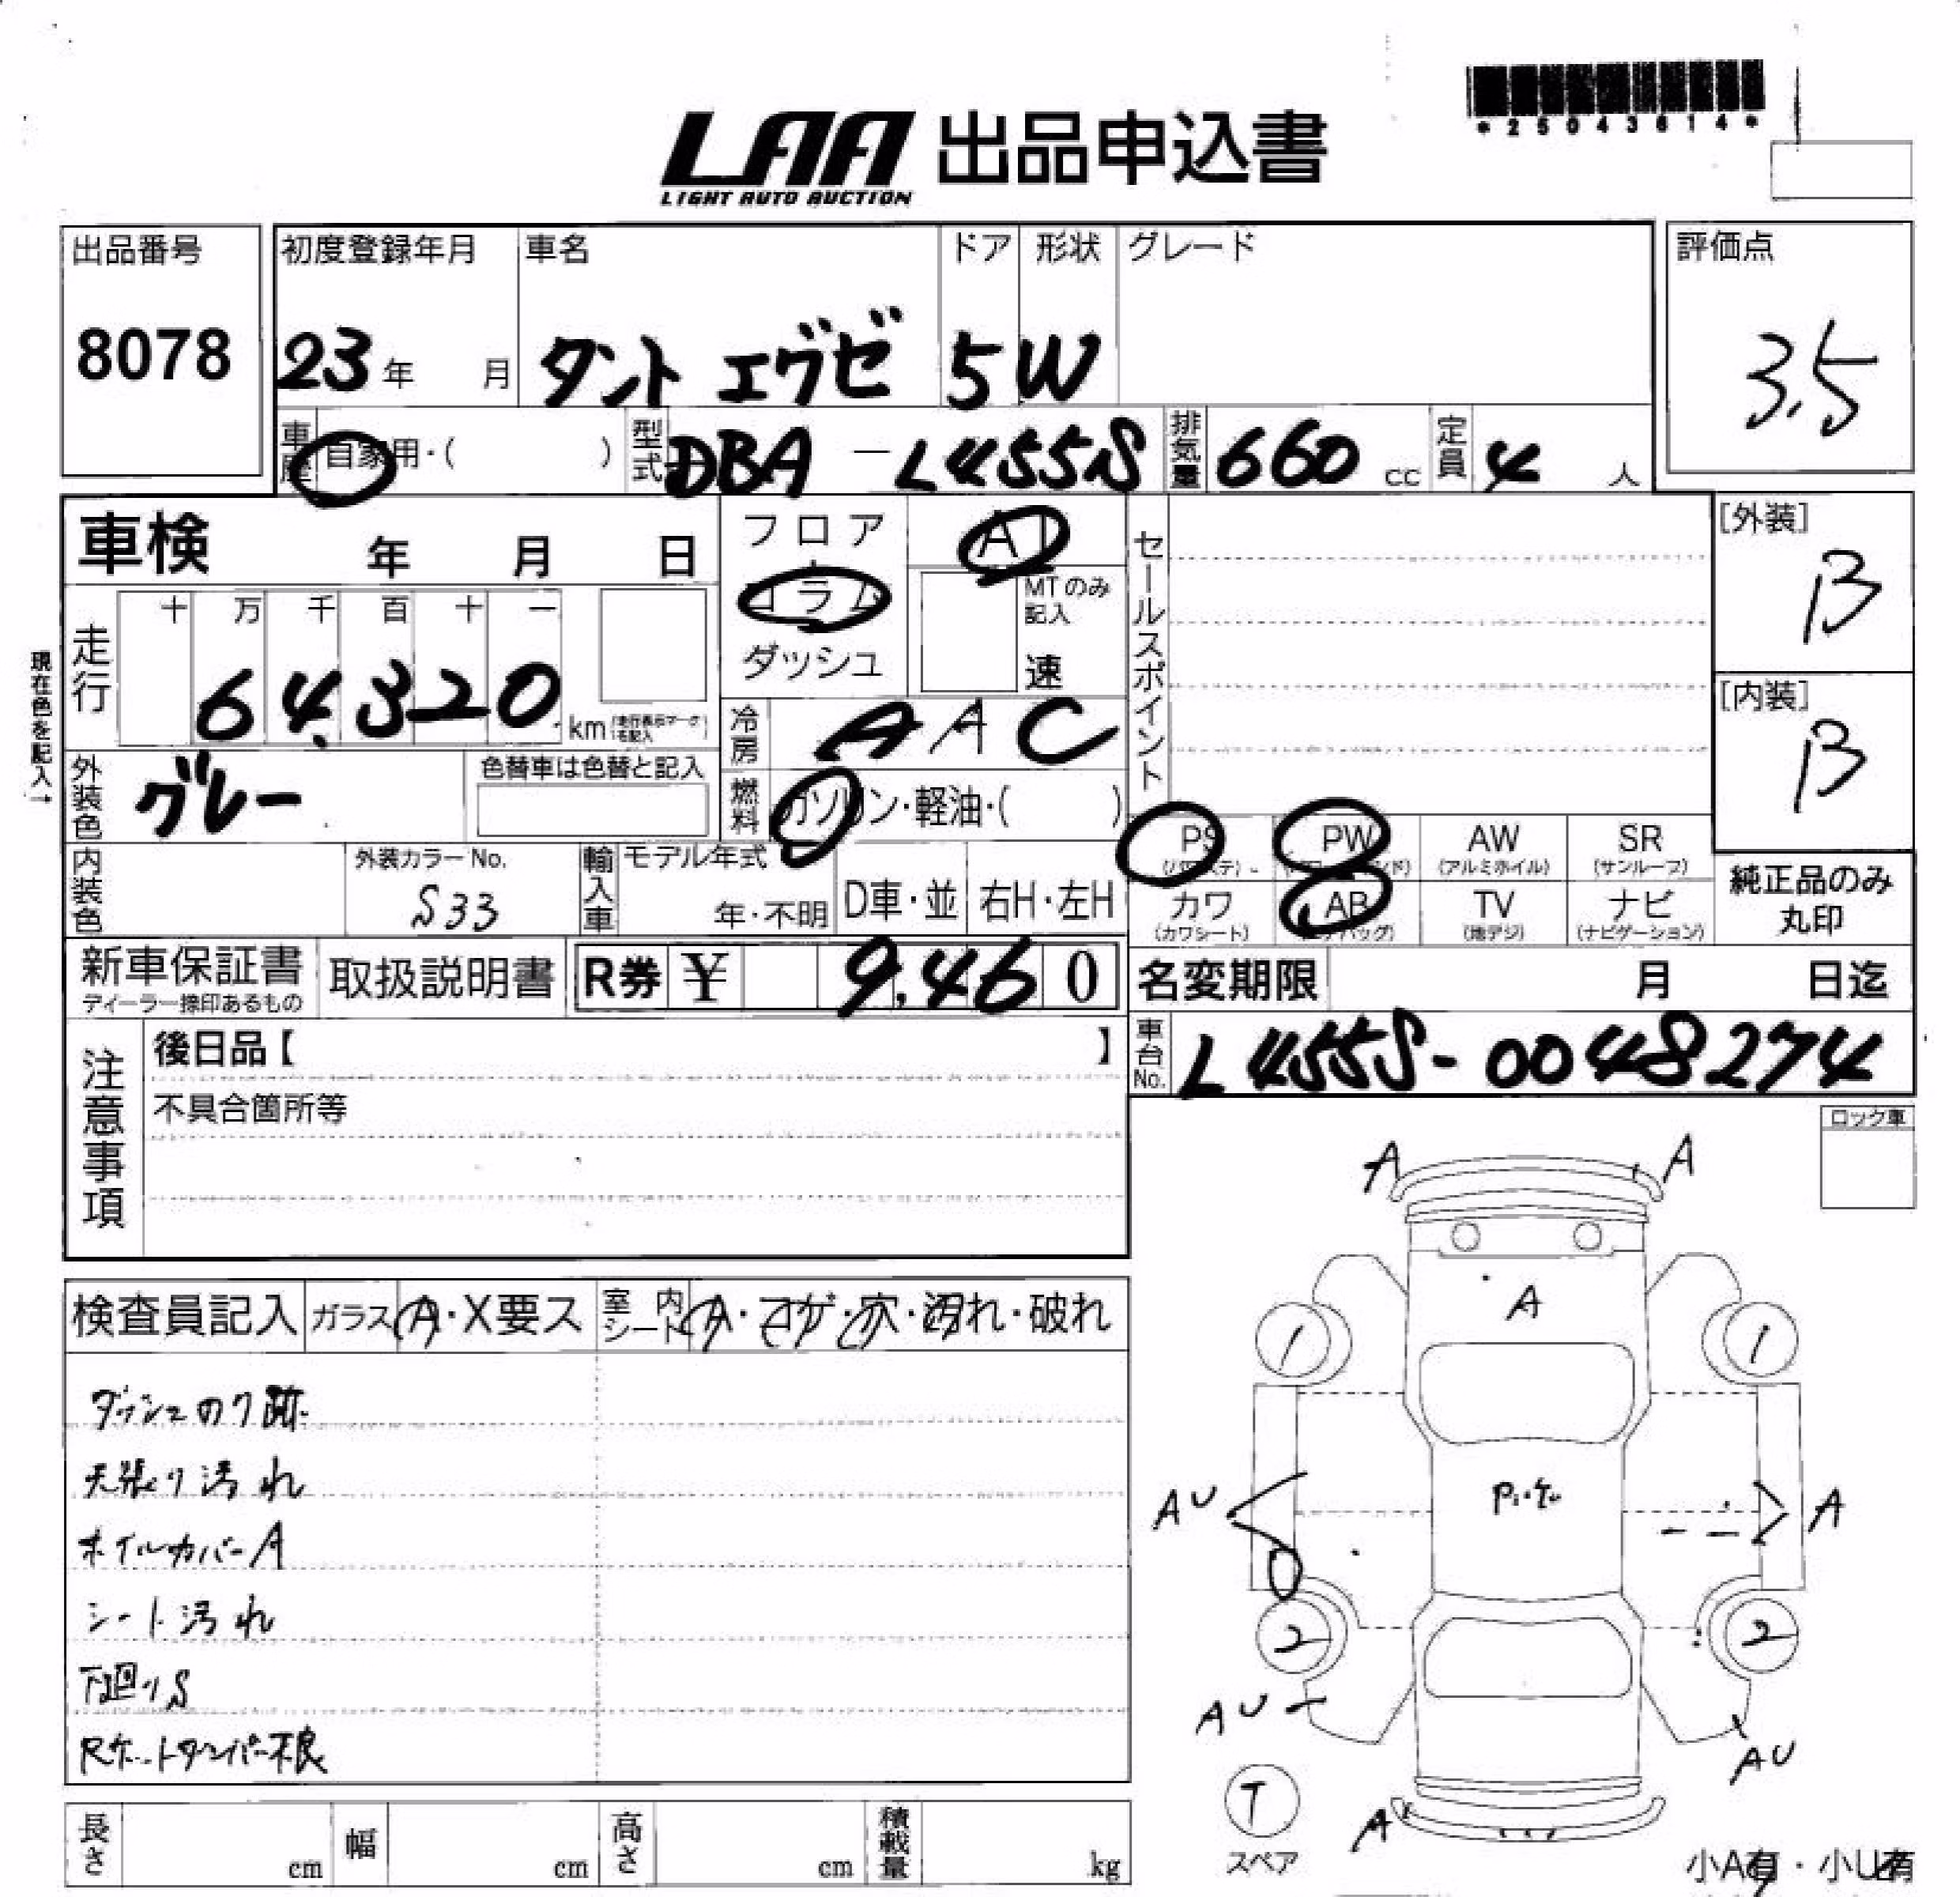 *25043614*
LAA 出品申込書
LIGHT AUTO AUCTION
出品番号 初度登録年月 車名 ドア 形状 グレード 評価点
8078 23年 月 タント エグゼ 5 W 3.5
車歴 自家用・( ) 型式 DBA-L455S 排気量 660 cc 定員 4 人
車検 年 月 日 フロア AT セールスポイント [外装]
B
現在色を記入→
走行 十 万 千 百 十 一 コラム MTのみ記入
64,320 km (走行表示マークを記入) ダッシュ 速
[内装]
B
冷房 AAC
外装色 グレー 色替車は色替と記入 燃料 ガソリン・軽油・( )
PS PW AW SR
(パワステ) (アルミホイル) (サンルーフ)
内装色 外装カラーNo. 輸入車 モデル年式
S33 年・不明 D車・並 右H・左H
カワ AB TV ナビ 純正品のみ
(カワシート) (エアバッグ) (地デジ) (ナビゲーション) 丸印
新車保証書 取扱説明書 R券 ¥ 9,460 名変期限 月 日迄
ディーラー捺印あるもの
車台No. L455S-0048274
注意事項 後日品【 】
不具合箇所等
ロック車
検査員記入 ガラス A・X要ス 室内シート A・コゲ・穴・汚れ・破れ
ダッシュのり跡
天張り汚れ
ホイルカバーA
シート汚れ
下廻りS
Rゲートダンパー不良
A A
A
1 1
AU A
2 2
AU AU
T
スペア
A
長さ cm 幅 cm 高さ cm 積載量 kg
小A有・小U有